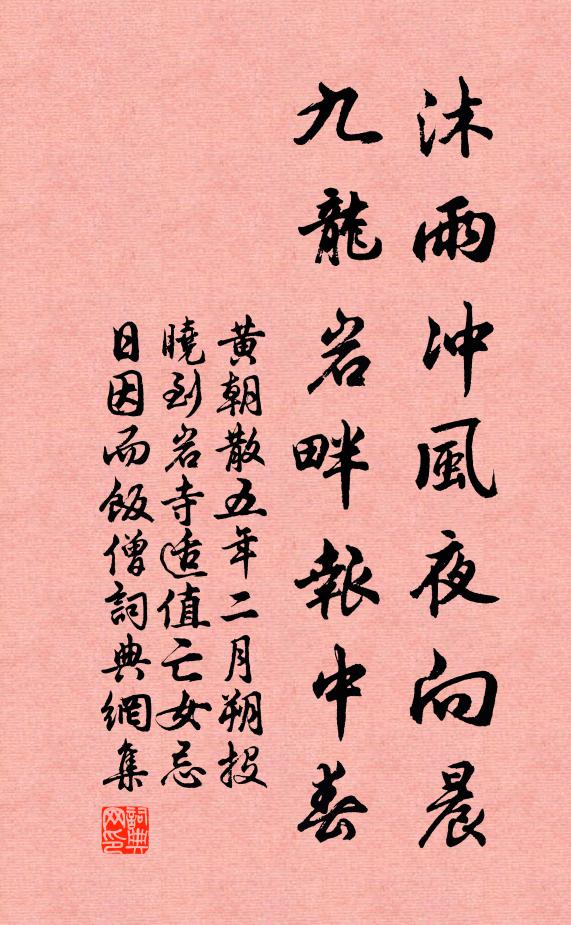 沐雨冲風夜向晨
九龍岩畔報中春
黄朝散五年二月朔投
曉到岩寺适值亡女忌
日因而飯僧詞典網集
詞典网印